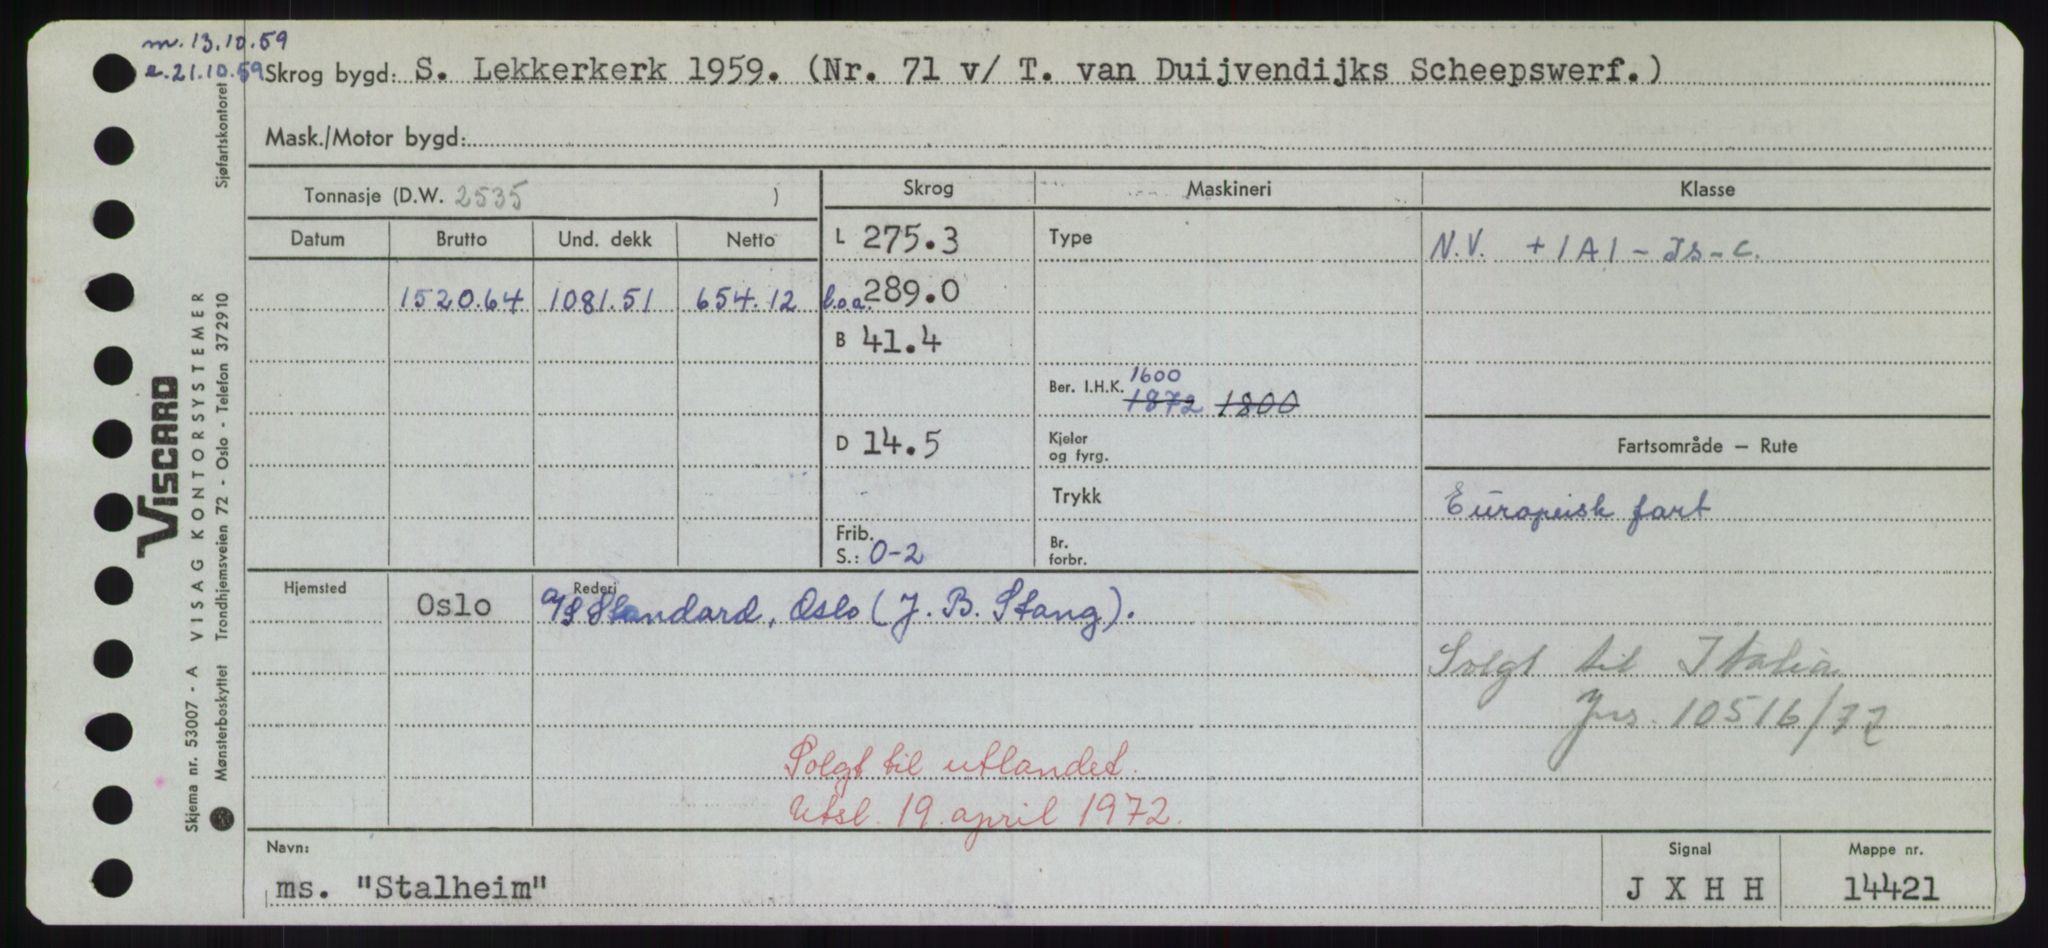 m. 13.10.59
e. 21.10.59 Skrog bygd: S. Lekkerkerk 1959. (Nr. 71 v/ T. van Duijvendijks Scheepswerf.)
Mask./Motor bygd:
Tonnasje (D.W. 2535 )
Skrog Maskineri Klasse
Datum Brutto Und. dekk Netto
L 275.3 Type N.V. + 1A1 - Is - C.
1520.64 1081.51 654.12 l.o.a. 289.0
B 41.4
1600
Ber. I.H.K. 1872 1800
D 14.5 Kjeler og fyrg. Fartsområde — Rute
Trykk Europeisk fart
Frib. S.: 0-2 Br. forbr.
Hjemsted Rederi
Oslo A/S Standard, Oslo (J. B. Stang).
Solgt til Italia
Jnr. 10516/72
Solgt til utlandet.
Utsl. 19. april 1972.
Navn: Signal Mappe nr.
ms. "Stalheim" J X H H 14421
Viscard
VISAG KONTORSYSTEMER
Skjema nr. 53007 - A
Mønsterbeskyttet Trondhjemsveien 72 - Oslo - Telefon 372910
Sjøfartskontoret